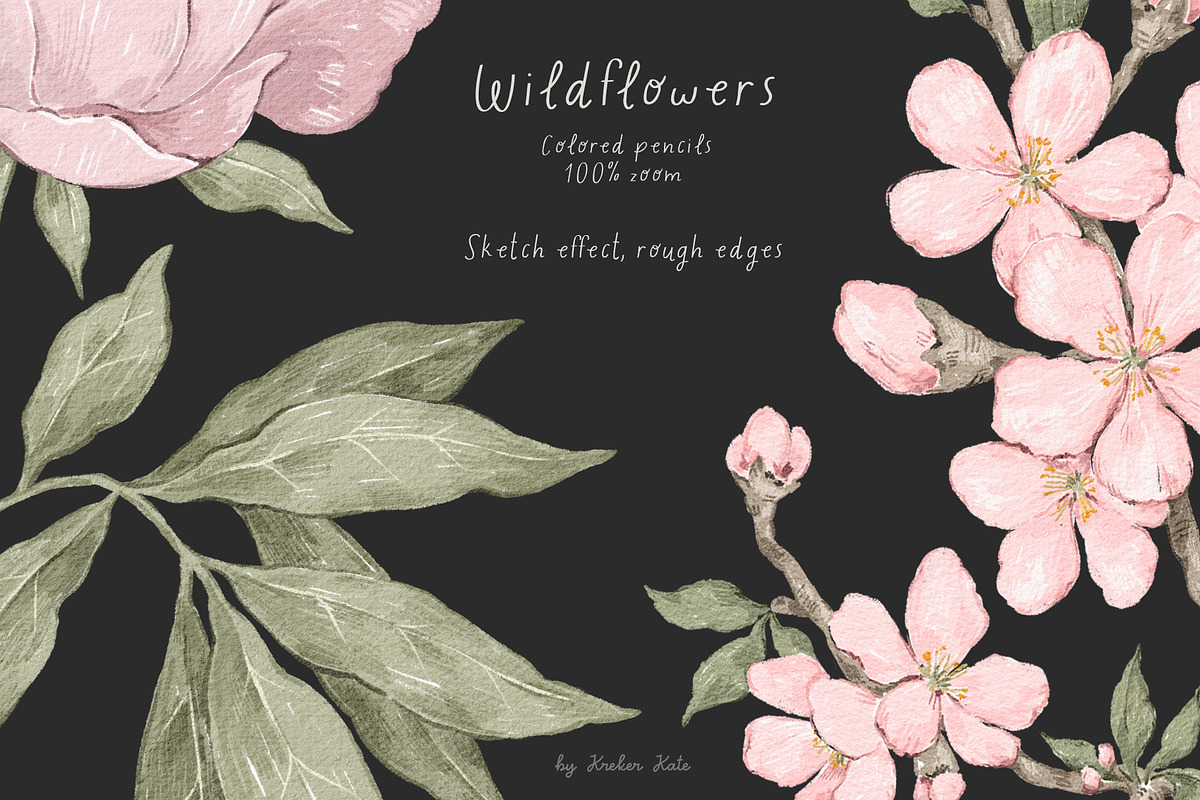 Wildflowers
Colored pencils
100% zoom
Sketch effect, rough edges
by Kreker Kate